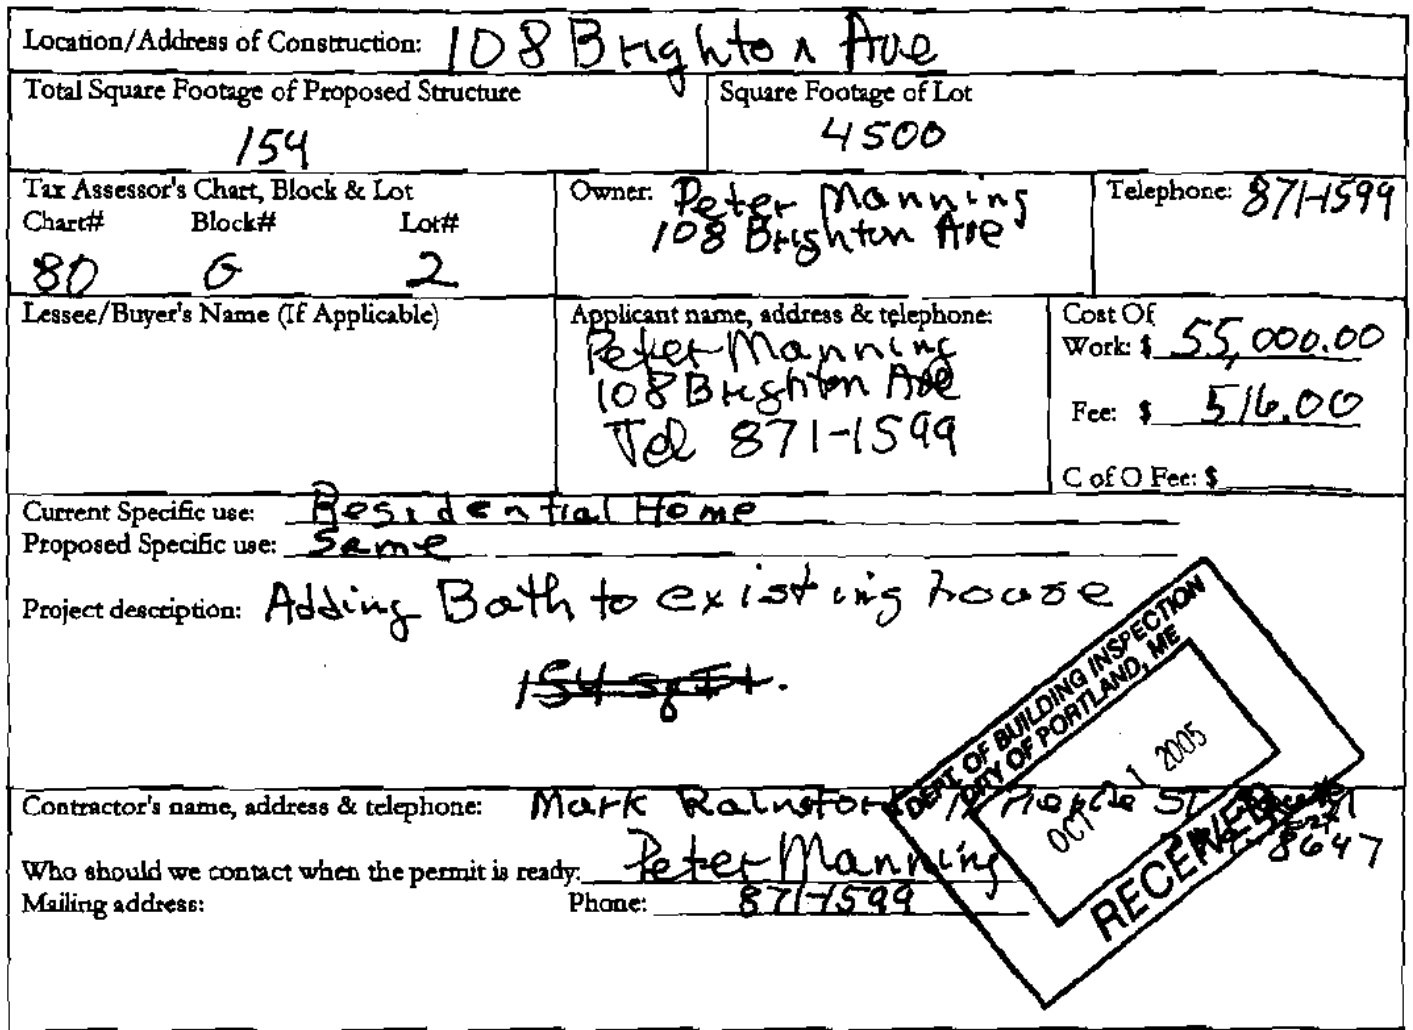 Location/Address of Construction: 108 Brighton Ave
Total Square Footage of Proposed Structure
154
Square Footage of Lot
4500
Tax Assessor's Chart, Block & Lot
Chart# Block# Lot#
80 G 2
Owner: Peter Manning
108 Brighton Ave
Telephone: 871-1599
Lessee/Buyer's Name (If Applicable)
Applicant name, address & telephone:
Peter Manning
108 Brighton Ave
Tel 871-1599
Cost Of
Work: $ 55,000.00
Fee: $ 516.00
C of O Fee: $
Current Specific use: Residential Home
Proposed Specific use: Same
Project description: Adding Bath to existing house
154 sq Ft.
DEPT. OF BUILDING INSPECTION
CITY OF PORTLAND, ME
OCT 1 2005
RECEIVED
Contractor's name, address & telephone: Mark ST
8647
Who should we contact when the permit is ready: Peter Manning
Mailing address: Phone: 871-1599